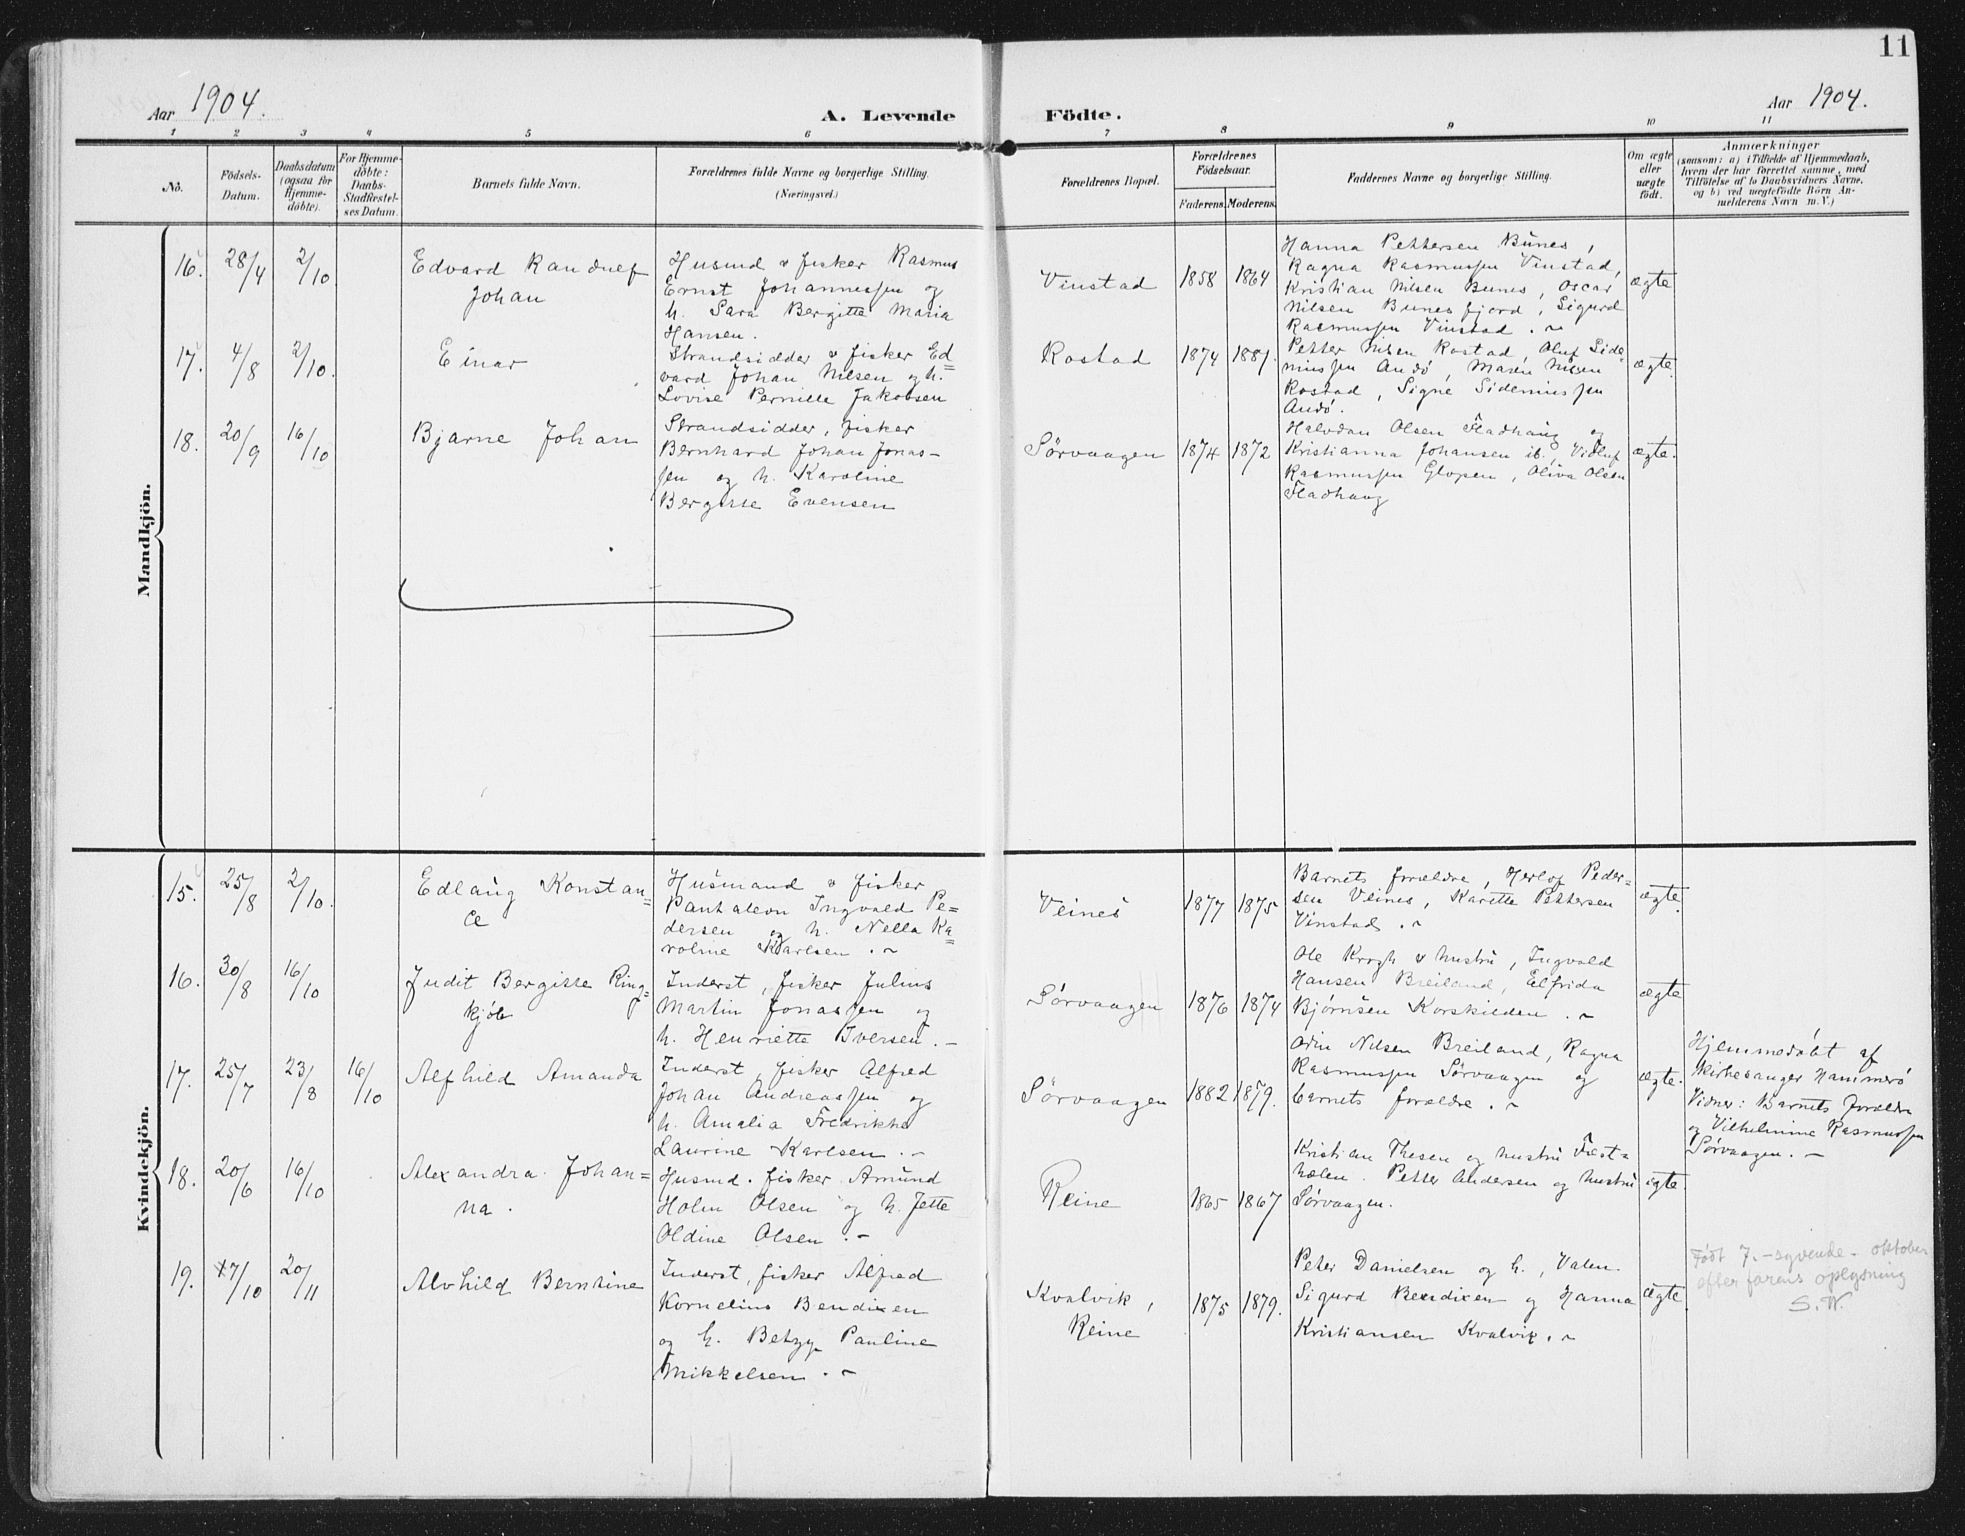 11
Aar 1904.
A. Levende Födte.
Aar 1904.
1 2 3 4 5 6 7 8 9 10 11
No.
Födsels-
Datum.
Daabsdatum
(ogsaa for
Hjemme-
döbte).
For Hjemme-
döbte:
Daabs-
Stadfæstel-
ses Datum.
Barnets fulde Navn.
Forældrenes fulde Navne og borgerlige Stilling.
(Næringsvei.)
Forældrenes Bopæl.
Forældrenes
Födselsaar.
Faderens. Moderens.
Faddernes Navne og borgerlige Stilling.
Om ægte
eller
uægte
födt.
Anmærkninger
(saasom: a) i Tilfælde af Hjemmedaab,
hvem der har forrettet samme, med
Tilföielse af to Daabsvidners Navne,
og b) ved uægtefödte Börn An-
melderens Navn m. V.)
Mandkjön.
16. 28/4 2/10
Edvard Randulf
Johan
Husmd & fisker Rasmus
Ernst Johannessen og
h. Sara Bergitte Maria
Hansen.
Vinstad 1858 1864
Hanna Pettersen Bunes,
Ragna Rasmussen Vinstad,
Kristian Nilsen Bunes, Oscar
Nilsen Bunesfjord, Sigurd
Rasmussen Vinstad. ~
ægte
17. 4/8 2/10.
Einar
Strandsidder & fisker Ed=
vard Johan Nilsen og h.
Lovise Pernille Jakobsen
Rostad 1874 1881.
Petter Nilsen Rostad, Oluf Side-
niussen Andö, Maren Nilsen
Rostad, Signe Sideniussen
Andö.
ægte.
18. 20/9 16/10
Bjarne Johan
Strandsidder, fisker
Bernhard Johan Jonas-
sen og h. Karoline
Bergitte Evensen
Sørvaagen 1874 1872
Halvdan Olsen Fladhaug og
Kristianna Johansen ib., Vidluf
Rasmussen Glopen, Oliva Olsen
Fladhaug
ægte.
Kvindekjön.
15. 25/8 2/10.
Edlaug Konstan=
ce
Husmand & fisker
Pantaleon Ingvald Pe=
dersen og h. Nella Ka=
roline Karlsen. ~
Veines 1877 1875
Barnets forældre, Herlof Peder-
sen Veines, Karette Pettersen
Vinstad. ~
ægte.
16. 30/8 16/10
Judit Bergitte Ring=
kjøb
Inderst, fisker Julius
Martin Jonassen og
h. Henriette Iversen. -
Sørvaagen 1876 1874
Ole Krogh & hustru, Ingvald
Hansen Breiland, Elfrida
Bjørnsen Korskilden. ~
ægte
17. 25/7 23/8 16/10
Alfhild Amanda
Inderst, fisker Alfred
Johan Andreassen og
h. Amalia Fredrikke
Laurine Karlsen. ~
Sørvaagen 1882 1879.
Odin Nilsen Breiland, Ragna
Rasmussen Sørvaagen og
barnets forældre. ~
ægte.
Hjemmedøbt af
kirkesanger Hammerö
Vidner: Barnets forældre
og Vilhelmine Rasmussen
Sørvaagen. ~
18. 20/6 16/10
Alexandra Johan=
na.
Husmd. fisker Amund
Holm Olsen og h. Jette
Oldine Olsen. ~
Reine 1865 1867
Kristian Thesen og hustru Fest-
hælen. Petter Andersen og hustru
Sørvaagen.
ægte.
19. 7/10 20/11
Alvhild Berntine
Inderst, fisker Alfred
Kornelius Bendixen
og h. Betzy Pauline
Mikkelsen. ~
Kvalvik,
Reine
1875 1879.
Peter Danielsen og h., Valen
Sigurd Bendixen og Hanna
Kristiansen Kvalvik. ~
ægte.
Født 7. - syvende - oktober
efter farens oplysning
S.W.